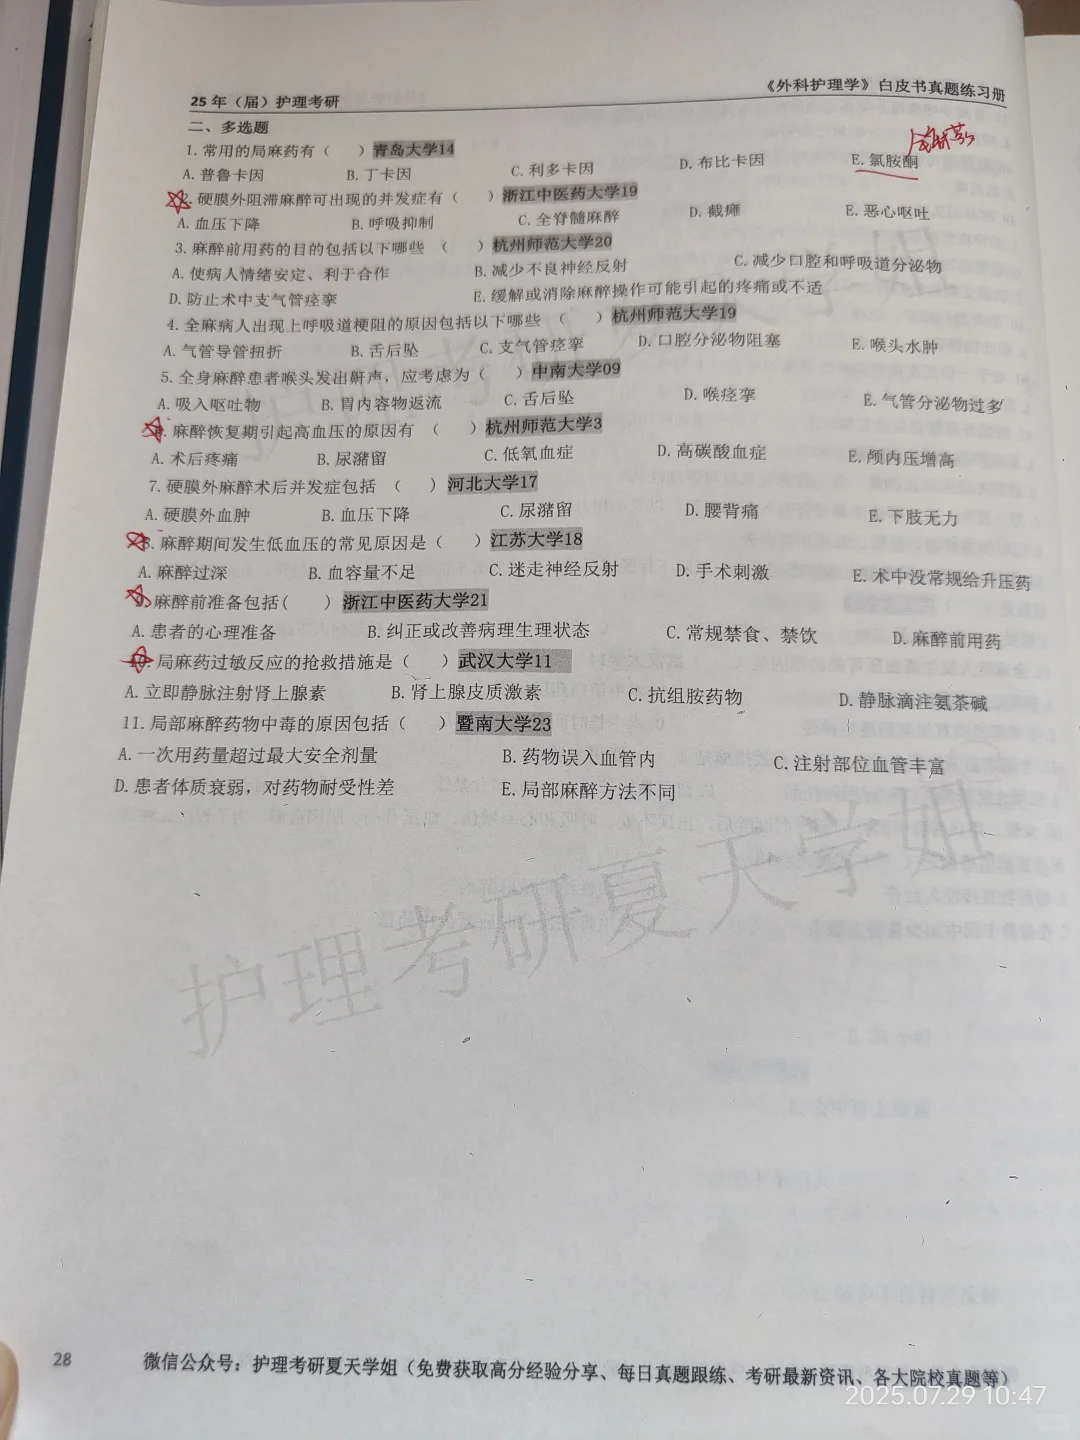 25年（届）护理考研 《外科护理学》白皮书真题练习册
二、多选题
1. 常用的局麻药有（ ）青岛大学14
A. 普鲁卡因 B. 丁卡因 C. 利多卡因 D. 布比卡因 E. 氯胺酮
2. 硬膜外阻滞麻醉可出现的并发症有（ ）浙江中医药大学19
A. 血压下降 B. 呼吸抑制 C. 全脊髓麻醉 D. 截瘫 E. 恶心呕吐
3. 麻醉前用药的目的包括以下哪些（ ）杭州师范大学20
A. 使病人情绪安定、利于合作 B. 减少不良神经反射 C. 减少口腔和呼吸道分泌物
D. 防止术中支气管痉挛 E. 缓解或消除麻醉操作可能引起的疼痛或不适
4. 全麻病人出现上呼吸道梗阻的原因包括以下哪些（ ）杭州师范大学19
A. 气管导管扭折 B. 舌后坠 C. 支气管痉挛 D. 口腔分泌物阻塞 E. 喉头水肿
5. 全身麻醉患者喉头发出鼾声，应考虑为（ ）中南大学09
A. 吸入呕吐物 B. 胃内容物返流 C. 舌后坠 D. 喉痉挛 E. 气管分泌物过多
麻醉恢复期引起高血压的原因有（ ）杭州师范大学3
A. 术后疼痛 B. 尿潴留 C. 低氧血症 D. 高碳酸血症 E. 颅内压增高
7. 硬膜外麻醉术后并发症包括（ ）河北大学17
A. 硬膜外血肿 B. 血压下降 C. 尿潴留 D. 腰背痛 E. 下肢无力
8. 麻醉期间发生低血压的常见原因是（ ）江苏大学18
A. 麻醉过深 B. 血容量不足 C. 迷走神经反射 D. 手术刺激 E. 术中没常规给升压药
9. 麻醉前准备包括( ）浙江中医药大学21
A. 患者的心理准备 B. 纠正或改善病理生理状态 C. 常规禁食、禁饮 D. 麻醉前用药
局麻药过敏反应的抢救措施是（ ）武汉大学11
A. 立即静脉注射肾上腺素 B. 肾上腺皮质激素 C. 抗组胺药物 D. 静脉滴注氨茶碱
11. 局部麻醉药物中毒的原因包括（ ）暨南大学23
A. 一次用药量超过最大安全剂量 B. 药物误入血管内 C. 注射部位血管丰富
D. 患者体质衰弱，对药物耐受性差 E. 局部麻醉方法不同
护理考研夏天学姐
28 微信公众号：护理考研夏天学姐（免费获取高分经验分享、每日真题跟练、考研最新资讯、各大院校真题等）
2025.07.29 10:47